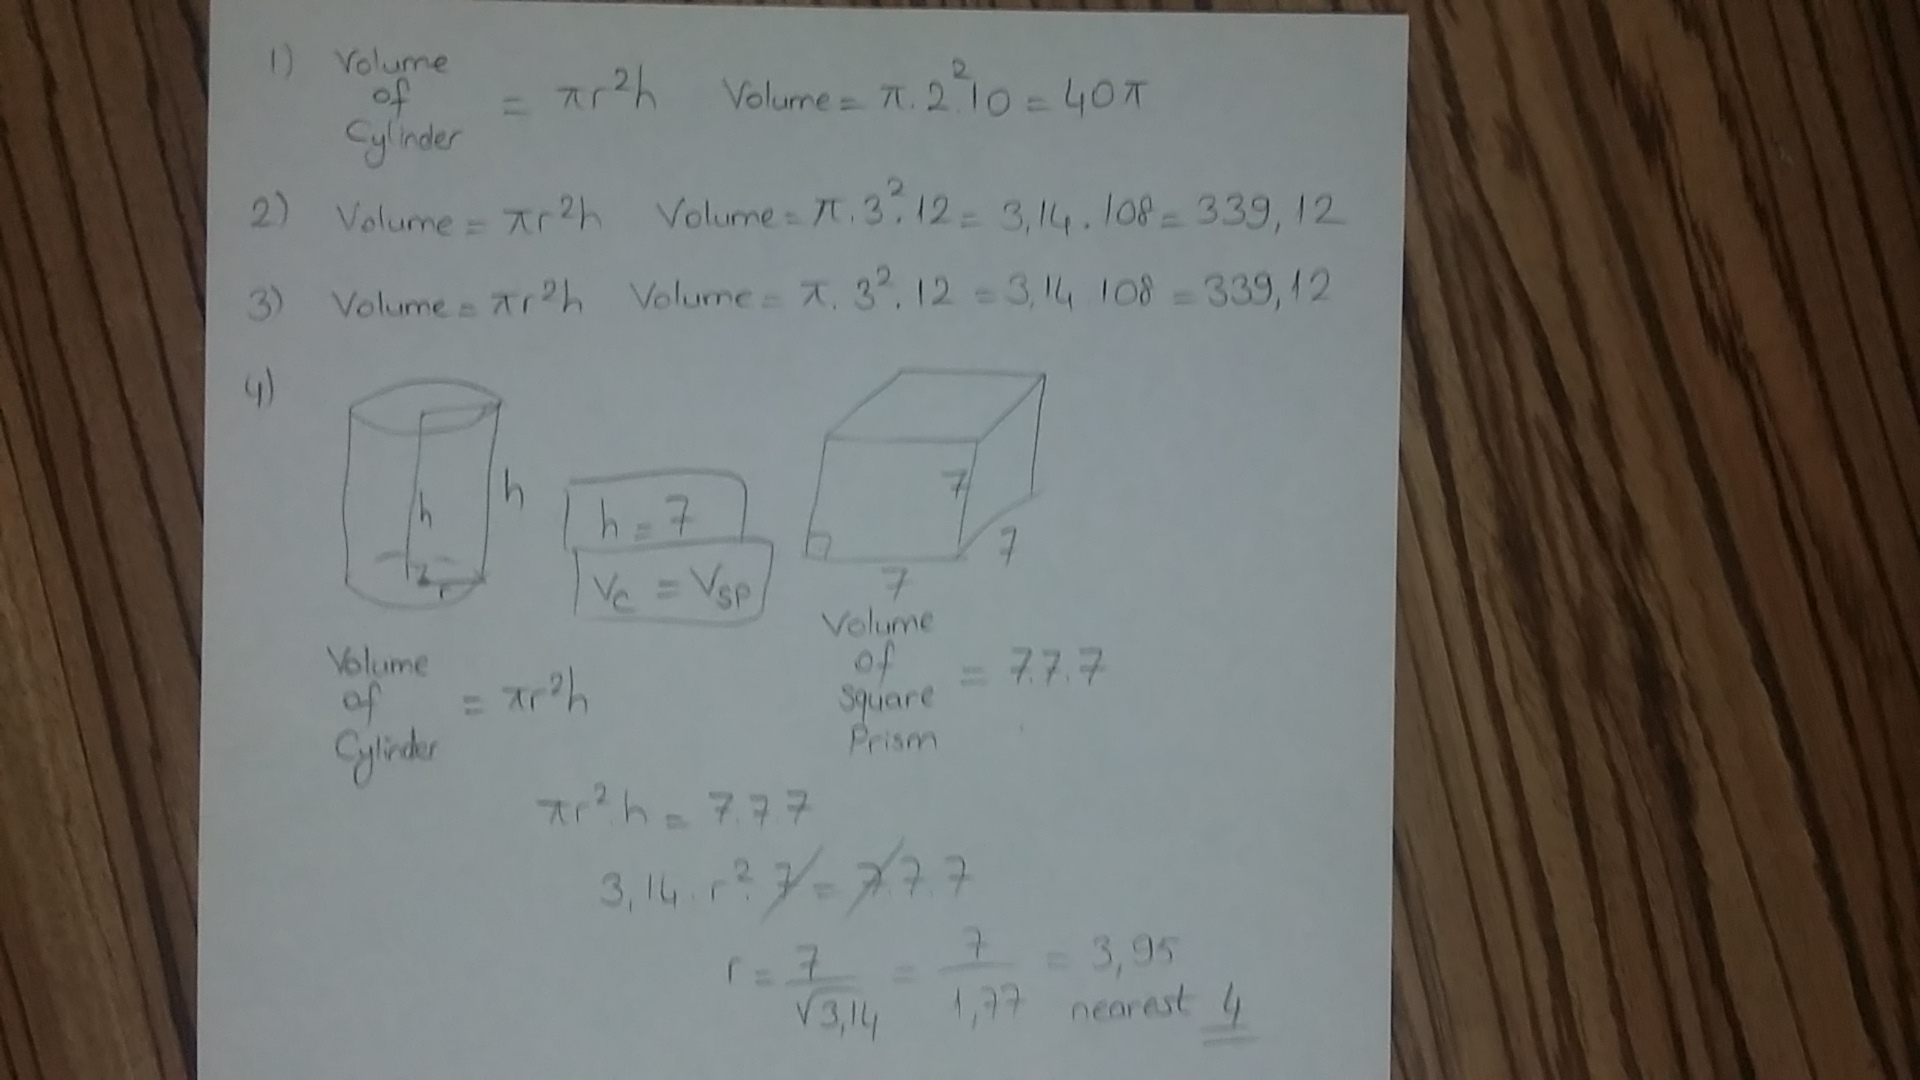 1) Volume of Cylinder = πr²h Volume = π.2².10 = 40π
2) Volume = πr²h Volume = π.3².12 = 3,14.108 = 339,12
3) Volume = πr²h Volume = π.3².12 = 3,14 108 = 339,12
4)
h
h
r
h = 7
Vc = VSP
7
7
7
Volume of Cylinder = πr²h
Volume of Square Prism = 7.7.7
πr².h = 7.7.7
3,14.r².7 = 7.7.7
r = 7/√3,14 = 7/1,77 = 3,95
nearest 4